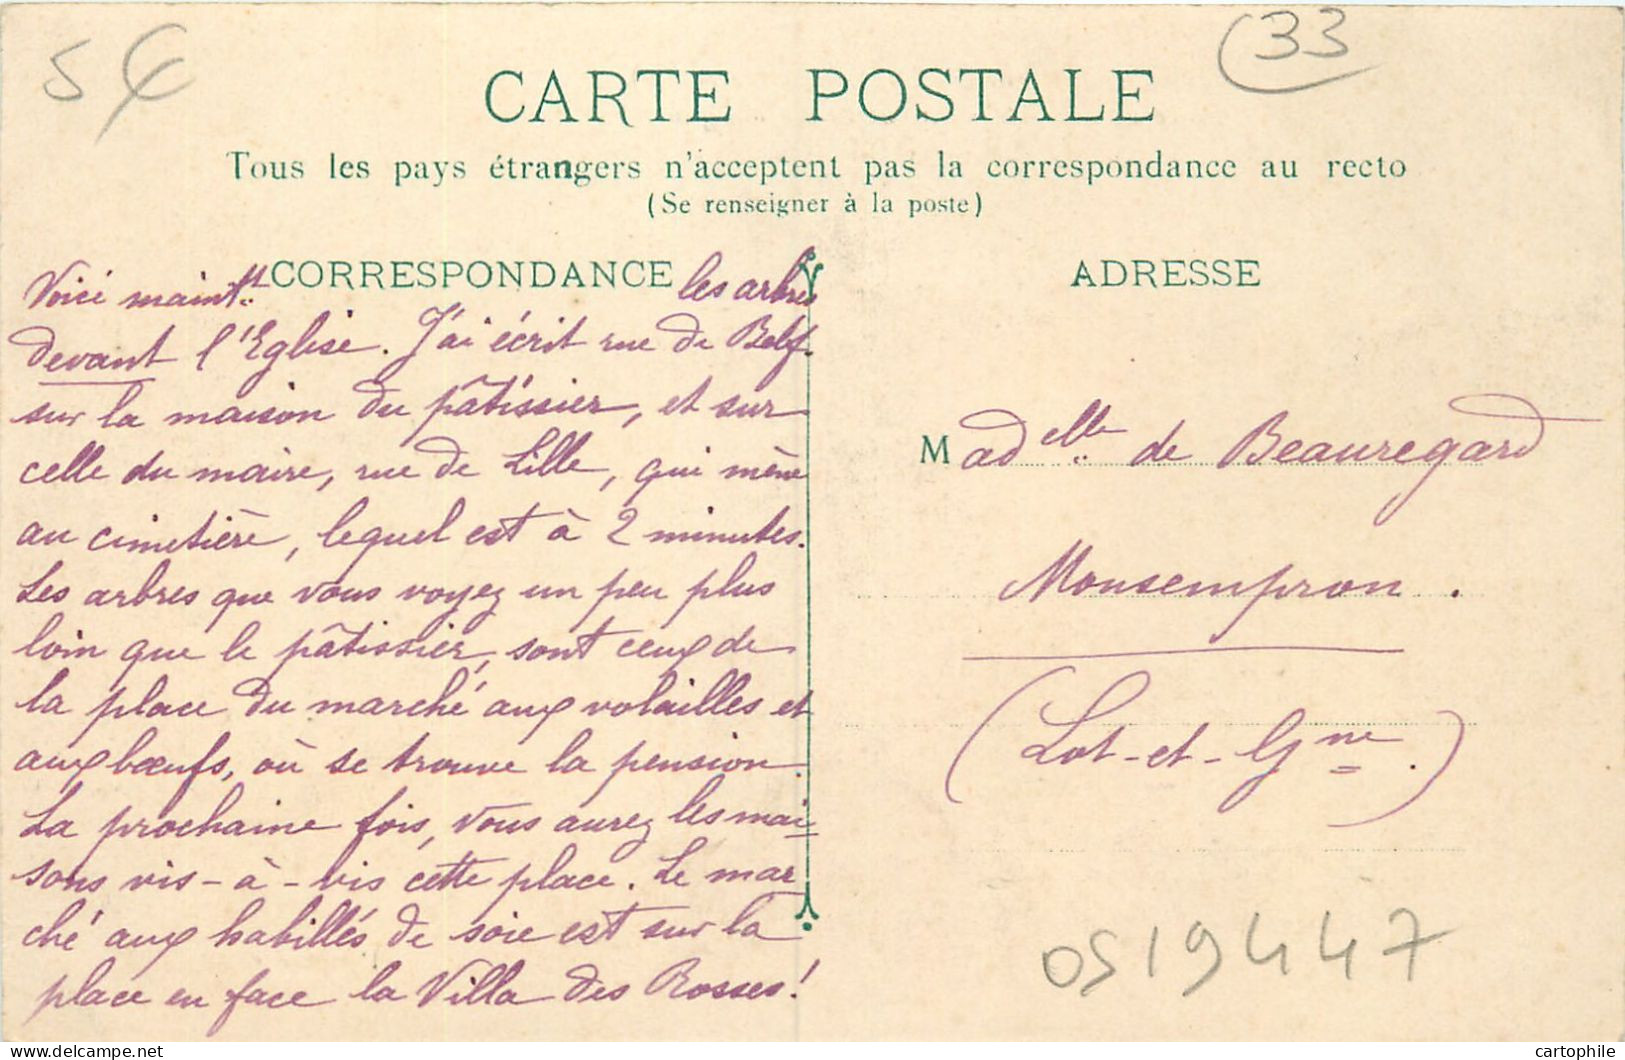 5€
33
CARTE POSTALE
Tous les pays étrangers n'acceptent pas la correspondance au recto
(Se renseigner à la poste)
CORRESPONDANCE
Voici maintt. les arbres
devant l'Eglise. J'ai écrit rue de Belf.
sur la maison du pâtissier, et sur
celle du maire, rue de Lille, qui mène
au cimetière, lequel est à 2 minutes.
Les arbres que vous voyez un peu plus
loin que le pâtissier, sont ceux de
la place du marché aux volailles et
aux bœufs, où se trouve la pension.
La prochaine fois, vous aurez les mai-
sons vis-à-vis cette place. Le mar-
ché aux habillés de soie est sur la
place en face la Villa des Rosses!
ADRESSE
Madelle. de Beauregard
Monsempron.
(Lot-et-Gne.)
0519447
delcampe.net
cartophile